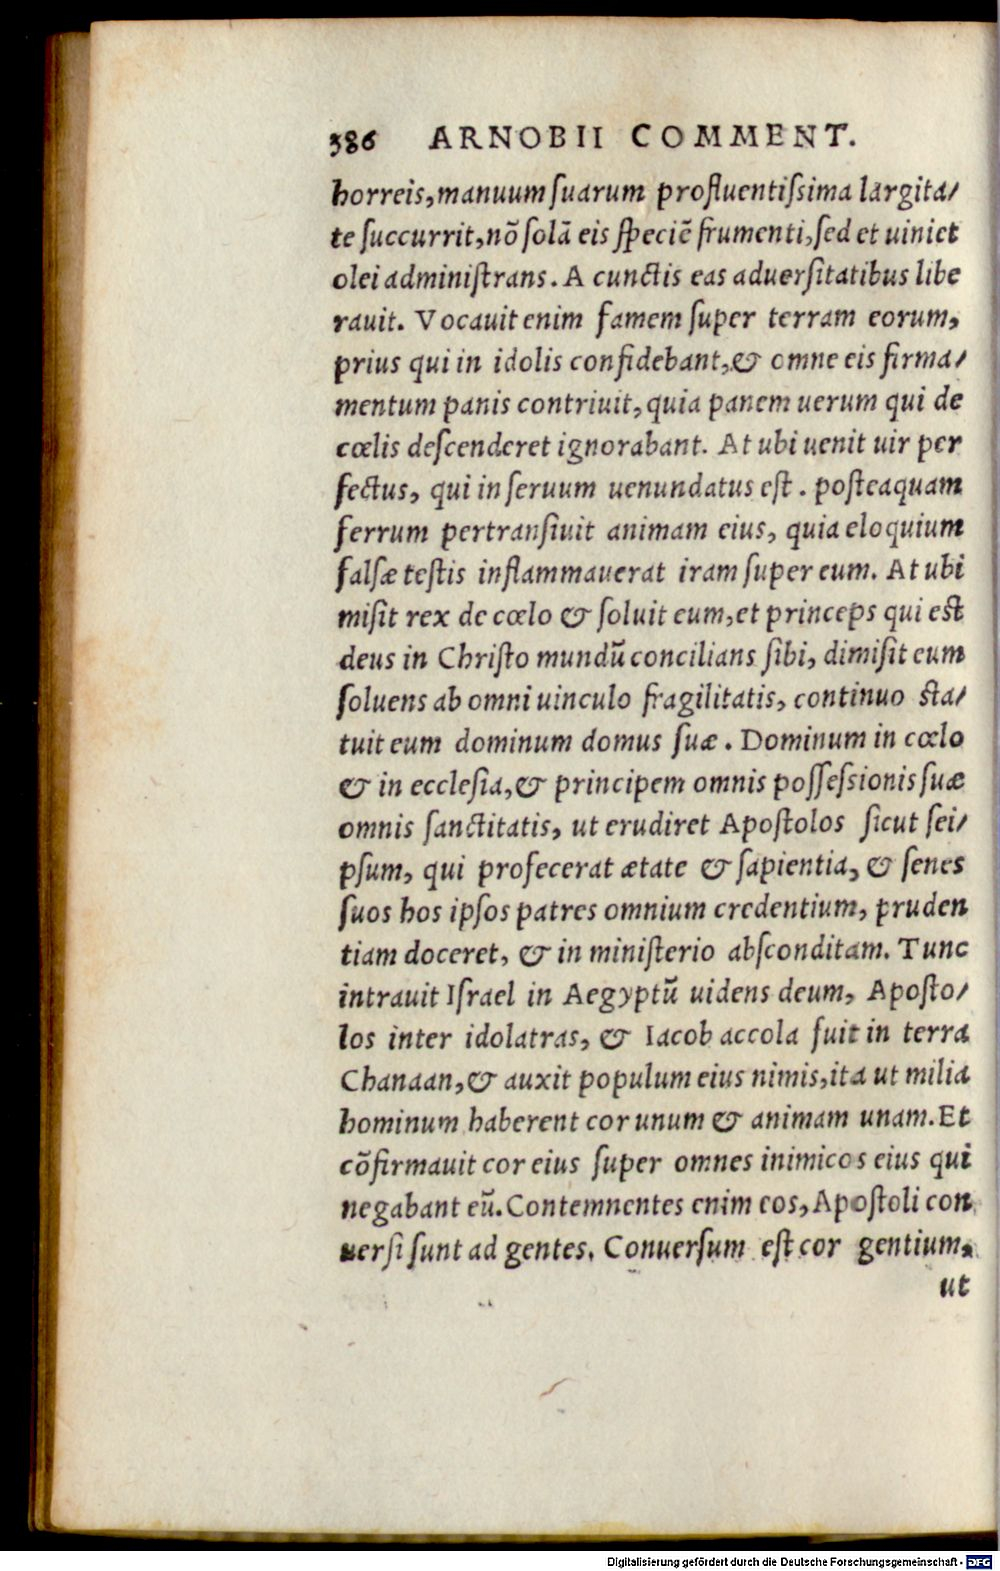 386 ARNOBII COMMENT.
horreis, manuum suarum profluentissima largita/
te succurrit, nõ solã eis speciẽ frumenti, sed et uini et
olei administrans. A cunctis eas aduersitatibus libe
rauit. Vocauit enim famem super terram eorum,
prius qui in idolis confidebant, & omne eis firma/
mentum panis contriuit, quia panem uerum qui de
cœlis descenderet ignorabant. At ubi uenit uir per
fectus, qui in seruum uenundatus est. posteaquam
ferrum pertransiuit animam eius, quia eloquium
falsæ testis inflammauerat iram super eum. At ubi
misit rex de cœlo & soluit eum, et princeps qui est
deus in Christo mundũ concilians sibi, dimisit eum
soluens ab omni uinculo fragilitatis, continuo sta/
tuit eum dominum domus suæ. Dominum in cœlo
& in ecclesia, & principem omnis possessionis suæ
omnis sanctitatis, ut erudiret Apostolos sicut sei/
psum, qui profecerat ætate & sapientia, & senes
suos hos ipsos patres omnium credentium, pruden
tiam doceret, & in ministerio absconditam. Tunc
intrauit Israel in Aegyptũ uidens deum, Aposto/
los inter idolatras, & Iacob accola fuit in terra
Chanaan, & auxit populum eius nimis, ita ut milia
hominum haberent cor unum & animam unam. Et
cõfirmauit cor eius super omnes inimicos eius qui
negabant eũ. Contemnentes enim eos, Apostoli con
uersi sunt ad gentes. Conuersum est cor gentium,
ut
Digitalisierung gefördert durch die Deutsche Forschungsgemeinschaft - DFG